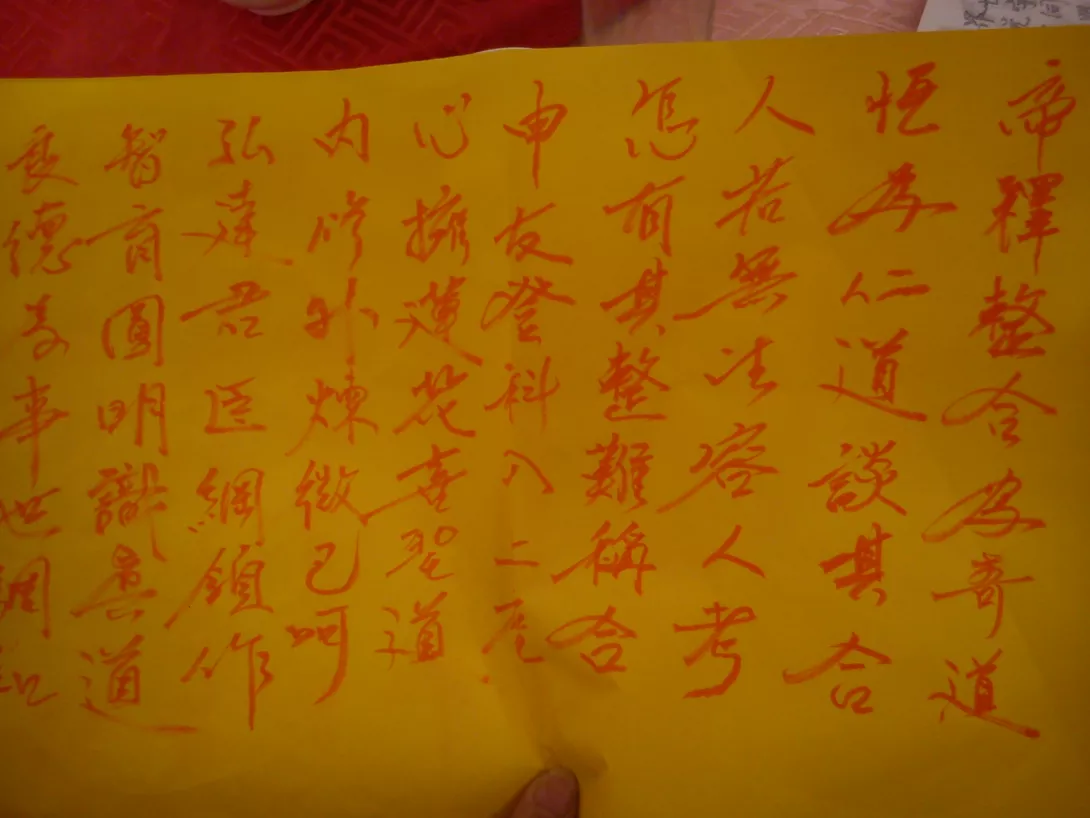 帝釋整合為奇道
恒為仁道談其合
人若無法容人考
怎有其整難稱合
申友登科入二度
心擁蓮花喜聖道
内修外煉微己呵
弘達君匡綱領作
智商圓明識異道
良德為事世調